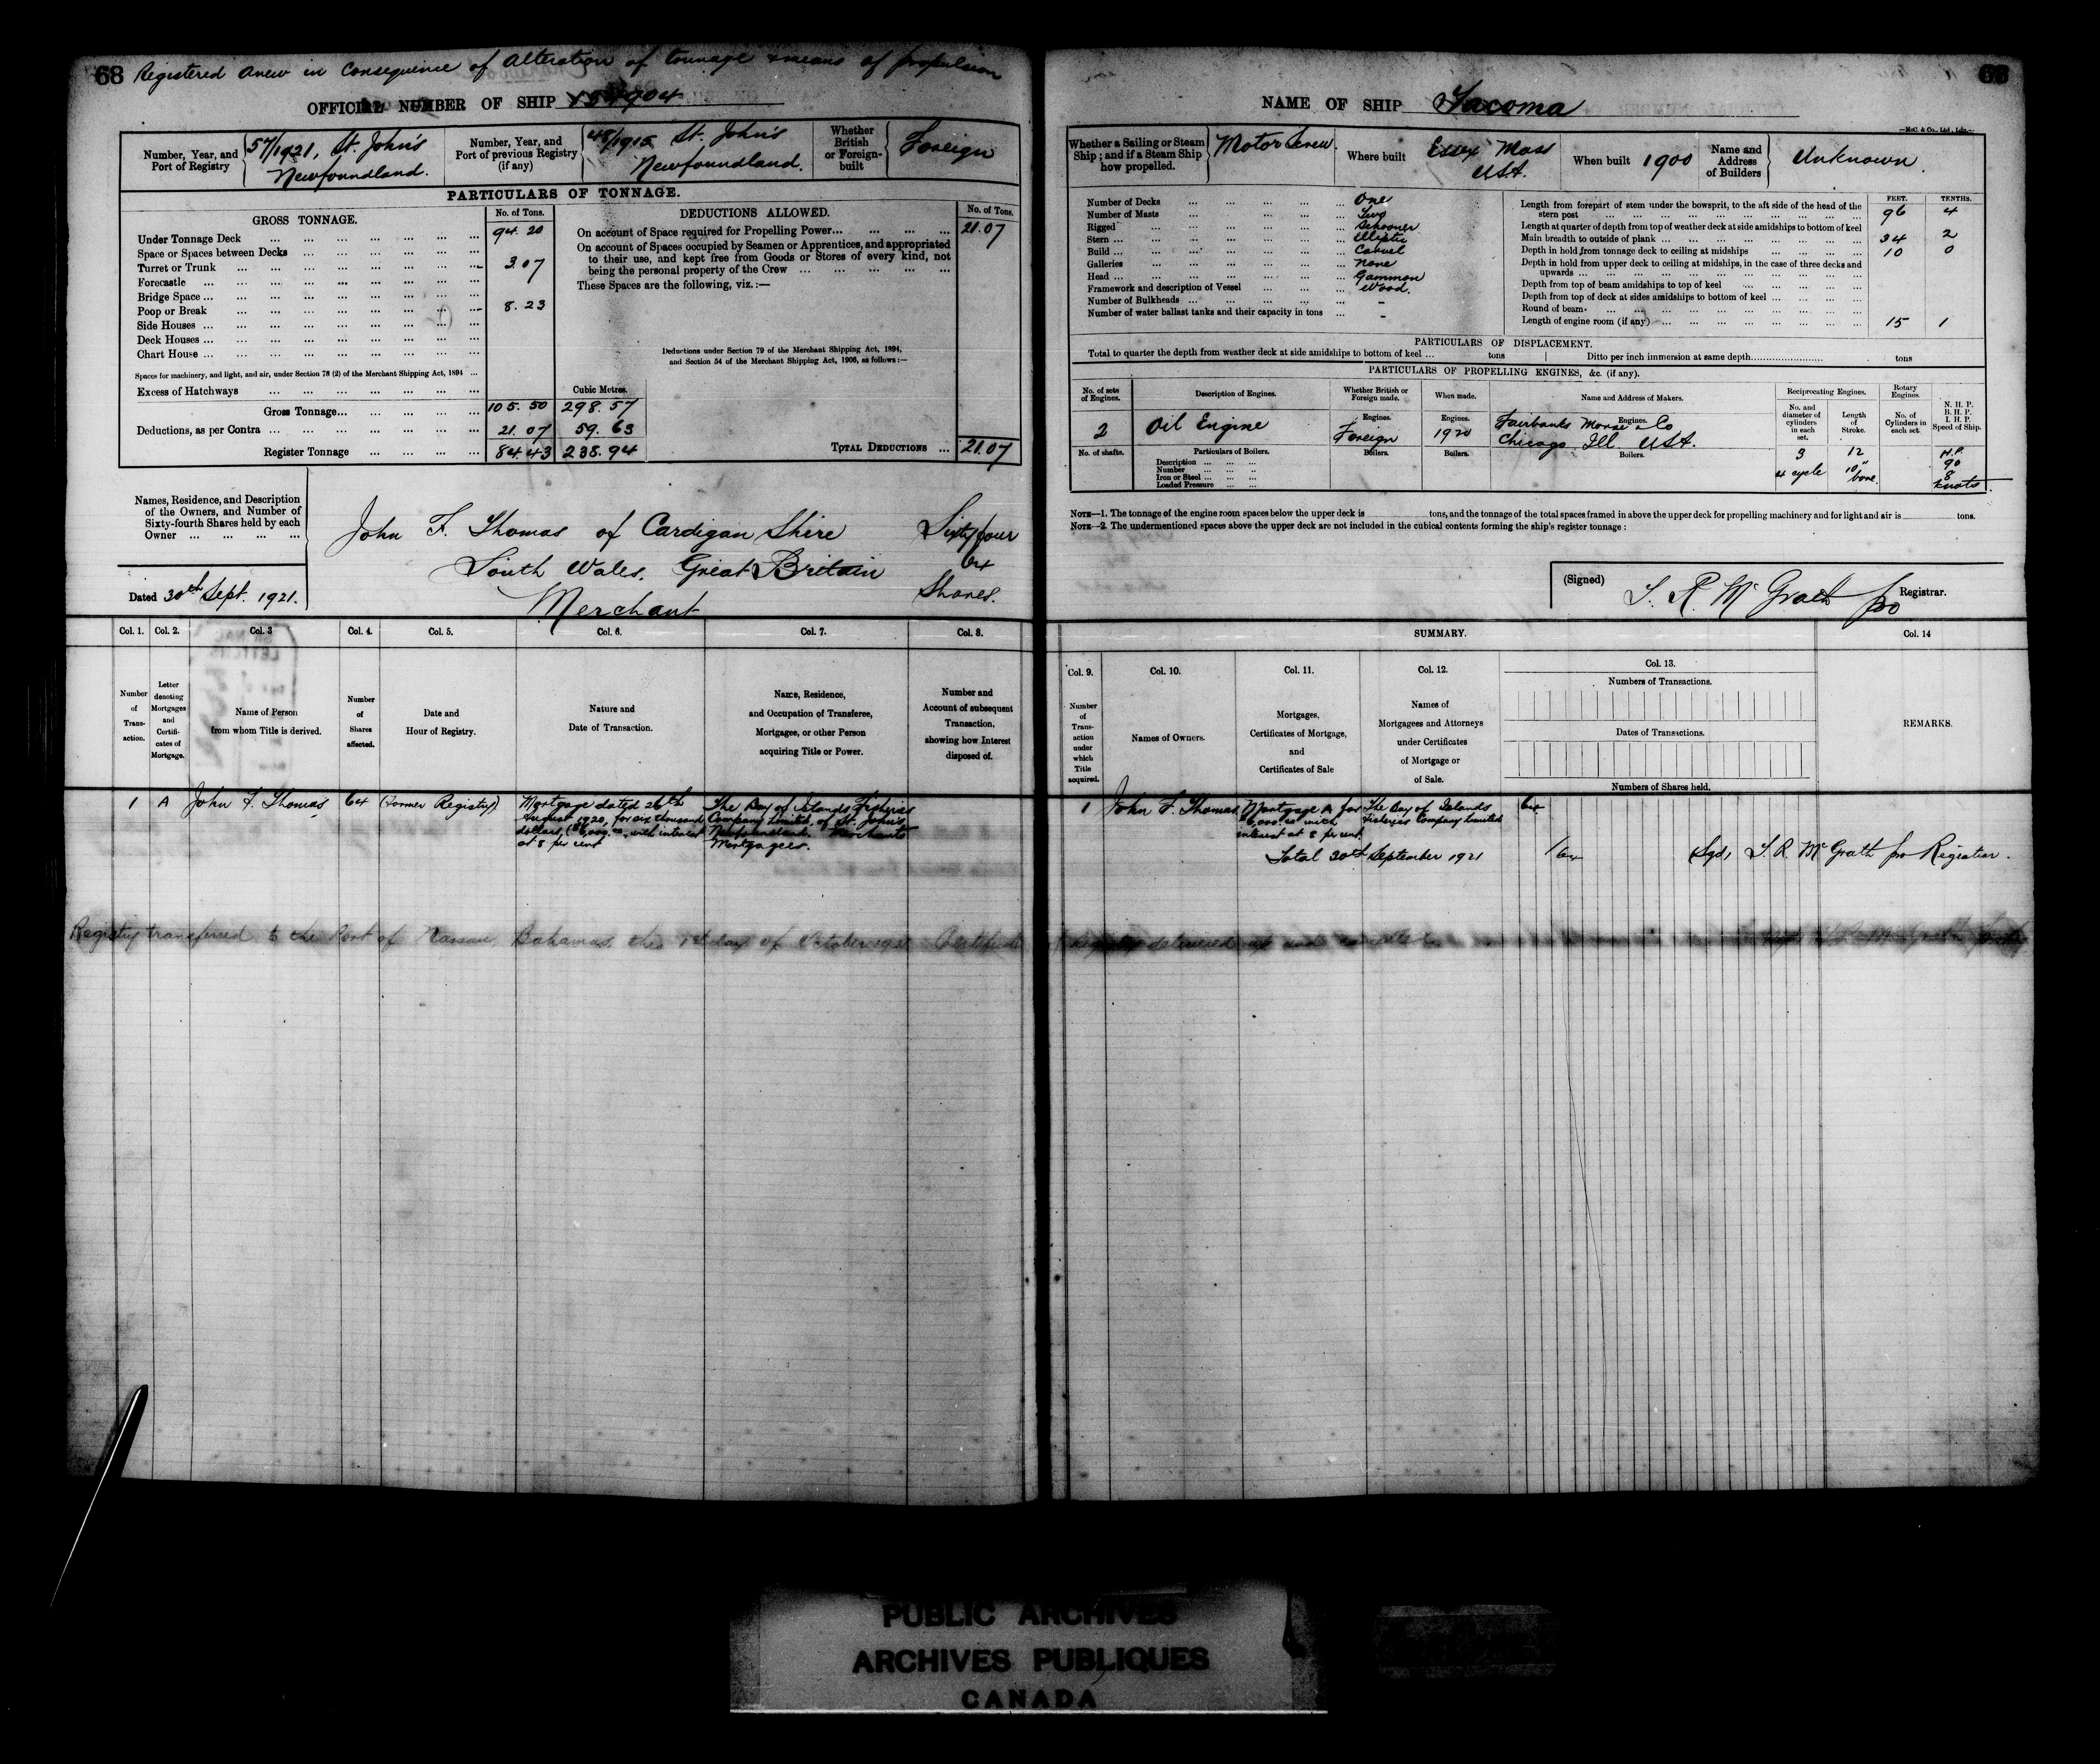 68 Registered anew in Consequence of Alteration of tonnage & means of propulsion
OFFICIAL NUMBER OF SHIP
Number, Year, and Port of Registry
57/1921, St. John's Newfoundland.
Number, Year, and Port of previous Registry (if any)
St. John's Newfoundland.
Whether British or Foreign-built
Foreign
PARTICULARS OF TONNAGE.
GROSS TONNAGE.
No. of Tons.
DEDUCTIONS ALLOWED.
No. of Tons.
Under Tonnage Deck 94.20
Space or Spaces between Decks
Turret or Trunk 3.07
Forecastle
Bridge Space
Poop or Break 8.23
Side Houses
Deck Houses
Chart House
Spaces for machinery, and light, and air, under Section 78 (2) of the Merchant Shipping Act, 1894
Excess of Hatchways
Cubic Metres.
Gross Tonnage 105.50 298.57
Deductions, as per Contra 21.07 59.63
Register Tonnage 84.43 238.94
On account of Space required for Propelling Power 21.07
On account of Spaces occupied by Seamen or Apprentices, and appropriated
to their use, and kept free from Goods or Stores of every kind, not
being the personal property of the Crew
These Spaces are the following, viz.:—
Deductions under Section 79 of the Merchant Shipping Act, 1894,
and Section 54 of the Merchant Shipping Act, 1906, as follows:—
TOTAL DEDUCTIONS 21.07
Names, Residence, and Description
of the Owners, and Number of
Sixty-fourth Shares held by each
Owner
John F. Thomas of Cardigan Shire Sixty four
South Wales. Great Britain 64
Merchant Shares.
Dated 30th Sept. 1921.
Col. 1. Col. 2. Col. 3 Col. 4. Col. 5. Col. 6. Col. 7. Col. 8.
Number of Transaction.
Letter denoting Mortgages and Certificates of Mortgage.
Name of Person from whom Title is derived.
Number of Shares affected.
Date and Hour of Registry.
Nature and Date of Transaction.
Name, Residence, and Occupation of Transferee, Mortgagee, or other Person acquiring Title or Power.
Number and Account of subsequent Transaction, showing how Interest disposed of.
1 A John F. Thomas 64 (Former Registry)
Mortgage dated 26th
August 1920, for six thousand
dollars, ($6,000.00, with interest
at 8 per cent
The Bay of Islands Fisheries
Company Limited, of St. John's
Newfoundland. Merchants
Mortgagees.
Registry transferred to the Port of Nassau, Bahamas, the 1st day of October 1921 Certificate of Registry delivered up and cancelled
NAME OF SHIP Tacoma
68
—McC. & Co., Ltd., Ldn.—
Whether a Sailing or Steam Ship; and if a Steam Ship how propelled.
Motor Screw.
Where built
Essex Mass USA.
When built 1900
Name and Address of Builders
Unknown
Number of Decks One
Number of Masts Two
Rigged Schooner
Stern Elliptic
Build Carvel
Galleries None
Head Gammon
Framework and description of Vessel Wood.
Number of Bulkheads -
Number of water ballast tanks and their capacity in tons -
FEET. TENTHS.
Length from forepart of stem under the bowsprit, to the aft side of the head of the
stern post 96 4
Length at quarter of depth from top of weather deck at side amidships to bottom of keel
Main breadth to outside of plank 24 2
Depth in hold from tonnage deck to ceiling at midships 10 0
Depth in hold from upper deck to ceiling at midships, in the case of three decks and
upwards
Depth from top of beam amidships to top of keel
Depth from top of deck at sides amidships to bottom of keel
Round of beam
Length of engine room (if any) 15 1
PARTICULARS OF DISPLACEMENT.
Total to quarter the depth from weather deck at side amidships to bottom of keel ... tons Ditto per inch immersion at same depth tons
PARTICULARS OF PROPELLING ENGINES, &c. (if any).
No. of sets of Engines.
Description of Engines.
Whether British or Foreign made.
When made.
Name and Address of Makers.
Reciprocating Engines.
No. and diameter of cylinders in each set.
Length of Stroke.
Rotary Engines.
No. of Cylinders in each set.
N. H. P. B. H. P. I. H. P. Speed of Ship.
2 Oil Engine
Engines. Foreign
Engines. 1920
Engines. Fairbanks Morse & Co
Chicago Ill USA.
3 12
4 cycle 10" bore.
H.P. 90
8 knots
No. of shafts.
Particulars of Boilers.
Boilers. Boilers. Boilers.
Description
Number
Iron or Steel
Loaded Pressure
NOTE—1. The tonnage of the engine room spaces below the upper deck is tons, and the tonnage of the total spaces framed in above the upper deck for propelling machinery and for light and air is tons.
NOTE—2. The undermentioned spaces above the upper deck are not included in the cubical contents forming the ship's register tonnage:
(Signed) McGrath pro Registrar.
SUMMARY.
Col. 9. Col. 10. Col. 11. Col. 12. Col. 13. Col. 14
Number of Transaction under which Title acquired.
Names of Owners.
Mortgages, Certificates of Mortgage, and Certificates of Sale
Names of Mortgagees and Attorneys under Certificates of Mortgage or of Sale.
Numbers of Transactions.
Dates of Transactions.
Numbers of Shares held.
REMARKS.
1 John F. Thomas
Mortgage A for
$6,000.00 with
interest at 8 per cent.
The Bay of Islands
Fisheries Company Limited
64
Total 30th September 1921 64 Sgd, McGrath pro Registrar.
PUBLIC ARCHIVES
ARCHIVES PUBLIQUES
CANADA